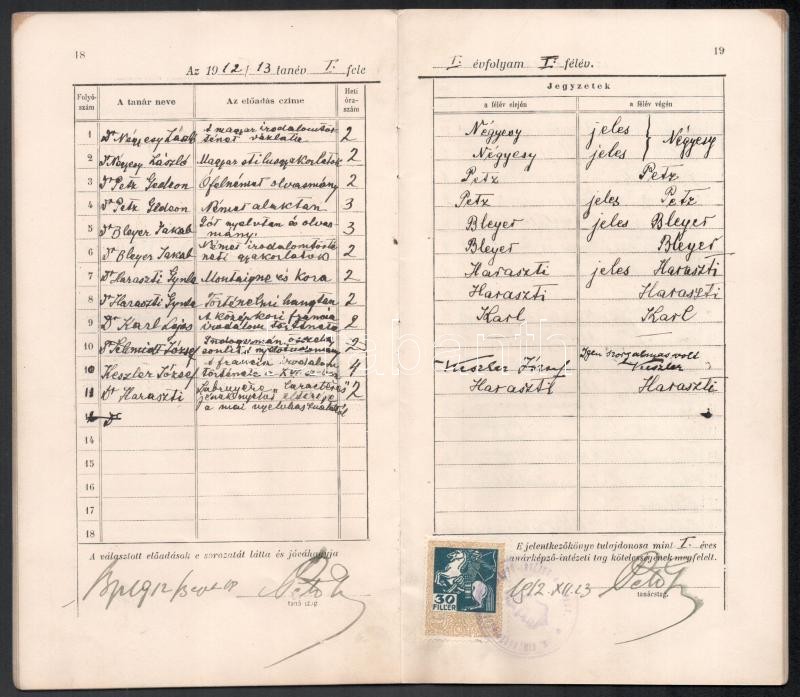 18
Az 1912/13 tanév I. fele
Folyó-szám
A tanár neve
Az előadás czíme
Heti óra-szám
1 Dr Négyesy László A magyar irodalomtör-
ténet vázlata 2
2 Dr Négyesy László Magyar stilusgyakorlatok 2
3 Dr Petz Gedeon Ófelnémet olvasmány 2
4 Dr Petz Gedeon Német alaktan 3
5 Dr Bleyer Jakab Gót nyelvtan és olvas-
mány. 3
6 Dr Bleyer Jakab Német irodalomtörté-
neti gyakorlatok 2
7 Dr Haraszti Gyula Montaigne és kora 2
8 Dr Haraszti Gyula Történelmi hangtan 2
9 Dr Karl Lajos A középkori francia
irodalom története 2
10 Dr Schmidt József 2
10 Keszler József A francia irodalom
története XVI. 4
11 Dr Haraszti Labruyère „Caractères"
a mai nyelvhasználattól 2
14
15
16
17
18
A választott előadások e sorozatát látta és jóváhagyja
Bp 1912
Petz G
19
I. évfolyam I. félév.
Jegyzetek
a félév elején
a félév végén
Négyesy jeles } Négyesy
Négyesy jeles
Petz Petz
Petz jeles Petz
Bleyer jeles Bleyer
Bleyer Bleyer
Haraszti jeles Haraszti
Haraszti Haraszti
Karl Karl
Keszler József Igen szorgalmas volt
Keszler
Haraszti Haraszti
E jelentkezőkönyv tulajdonosa mint I. éves
tanárképző-intézeti tag kötelességének megfelelt.
1912. XII. 13
Petz G
tanácstag.
30
FILLÉR